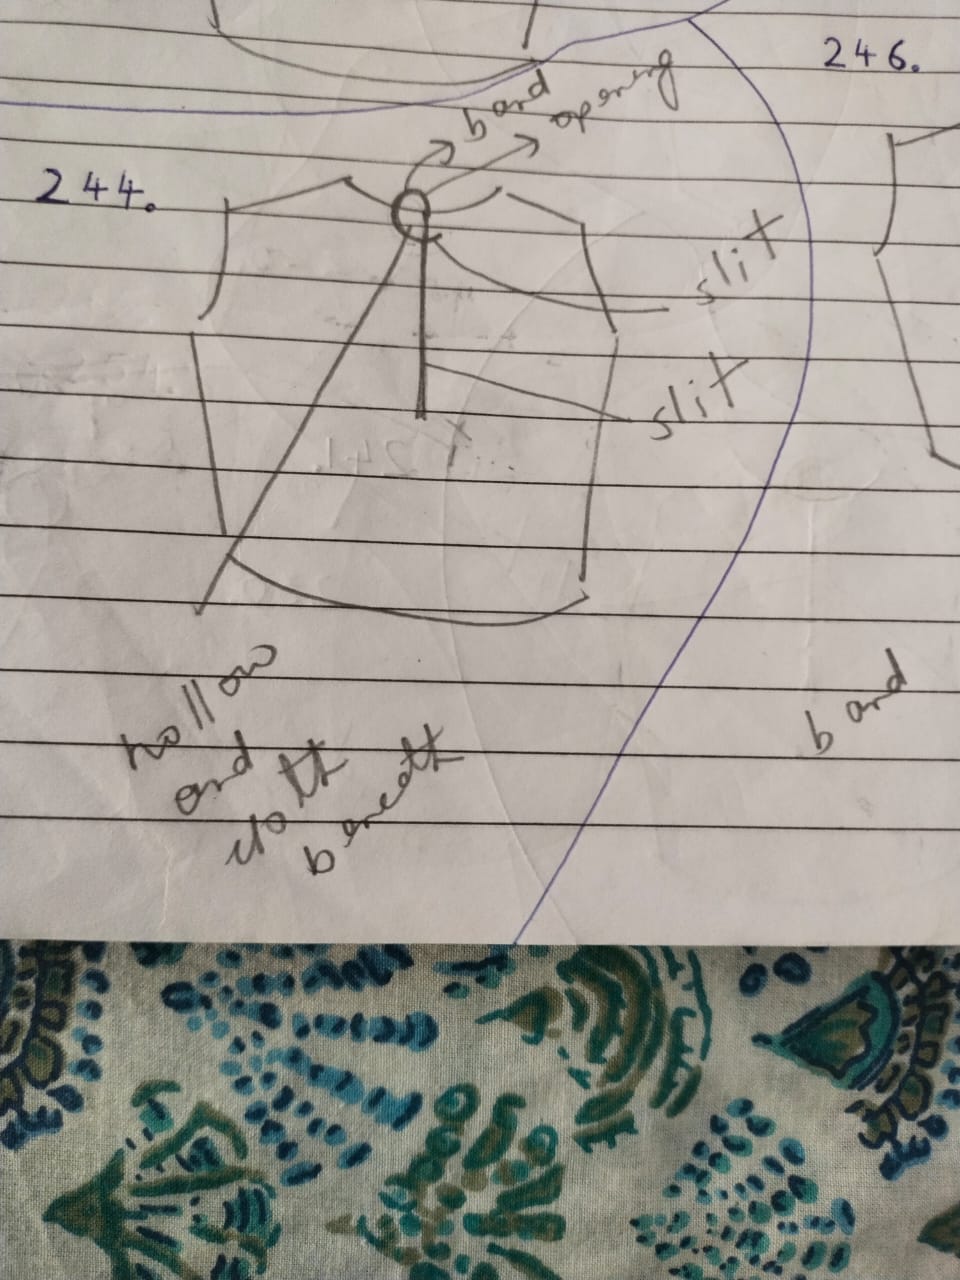 246.
band
opening
244.
slit
slit
hollow
and
cloth
beneath
band